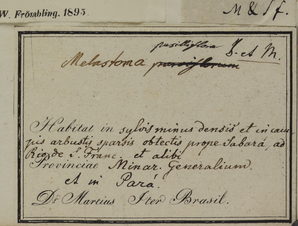 W. Frömbling. 1895
M & f.
pusilliflora
Melastoma parviflorum S. et M.
Habitat in sylvis minus densis et in cam
pis arbustis sparsis obtectis prope Sabará, ad
Rio de S. Franc. et alibi
Provinciae Minar. Generalium.
et in Para.
Dr Martius Iter Brasil.